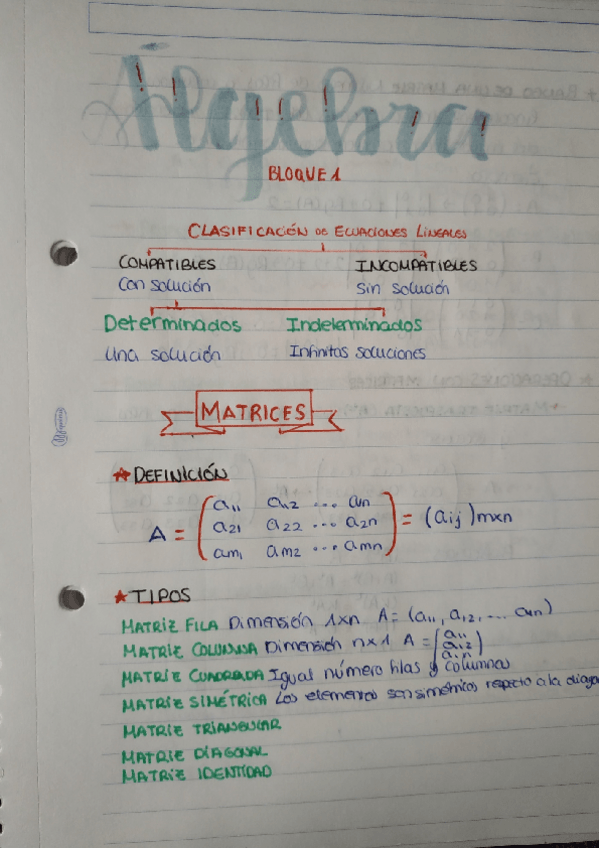 Álgebra
BLOQUE 1
CLASIFICACIÓN DE ECUACIONES LINEALES
COMPATIBLES INCOMPATIBLES
Con solución Sin solución
Determinados Indeterminados
Una solución Infinitas soluciones
MATRICES
★ DEFINICIÓN
A = (a11 a12 ... a1n
a21 a22 ... a2n
am1 am2 ... amn) = (aij)mxn
★ TIPOS
MATRIZ FILA Dimensión 1xn A = (a11, a12, ... a1n)
MATRIZ COLUMNA Dimensión nx1 A = (a11
a12
a1n)
MATRIZ CUADRADA Igual número filas y columnas
MATRIZ SIMÉTRICA Los elementos son simétricos respecto a la diago
MATRIZ TRIANGULAR
MATRIZ DIAGONAL
MATRIZ IDENTIDAD